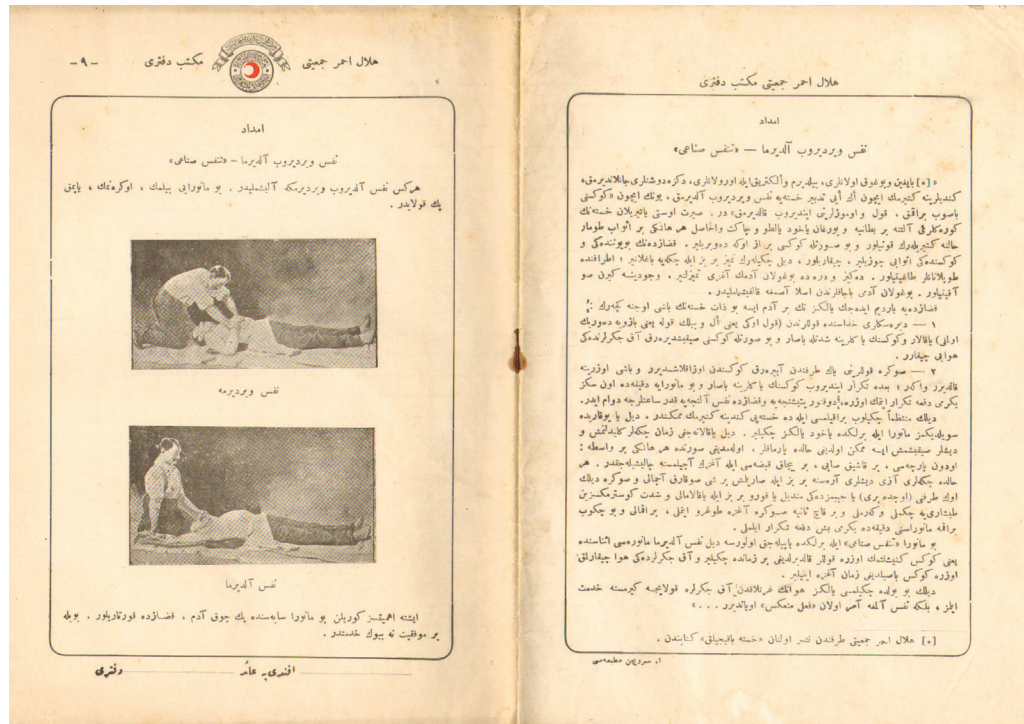 هلال احمر جمعيتی مكتب دفتری
امداد
نفس ويرديروب آلديرما — «تنفس صناعی»
« [*] بايغين وبوغوق اولانلری، ييلديرم والكتريق ايله اورولانلری، دكزه دوشنلری جانلانديرمق،
كنديلرينه كتيرمك ايچون اك أيی تدبير خسته‌يه نفس ويرديروب آلديرمق، بونك ايچون «كوكسی
باصوب براقمق، قول و اوموزلرينی اينديروب قالديرمق» در. صيرت اوستی ياتيريلان خسته‌نك
كوره‌كلری آلتنه بر بطانيه و يورغان ياخود پالطو و چاكت والحاصل هر هانكی بر اثواب طومار
حالنه كتيريله‌رك قونيلور و بو صورتله كوكسی بر از اوكه ده‌ويريلير. قضازده‌نك بويوننده‌كی و
كوكسنده‌كی اثوابی چوزيلير، چيقاريلور. ديلی چكيله‌رك تميز بر بز ايله چكه‌يه باغلانير؛ اطرافنده
طوپلانانلر طاغيتيلور. ده‌كيز و دره ده بوغولان آدمك آغزی تميزلنير. وجودينه كيرن صو
آقيتيلور. بوغولان آدمی باجاقلرندن اصلا آصمغه قالقيشماميليدر.
قضازده‌يه يارديم ايده‌جك يالكز تك بر آدم ايسه بو ذات خسته‌نك باشی اوجنه كچه‌رك :
١ — ديرسكلری حذاسنده قوللرندن (قول اوكی يعنی أل و بيلك قوله يعنی بازويه ده‌وريك
اولملی) ياقالار وكوكسنك يانلرينه شدتله باصار و بو صورتله كوكسی صيقيشديره‌رق آق جكرلرنده‌كی
هوايی چيقارر.
٢ — صوكره قوللرينی يان طرفندن آييره‌رق كوكسندن اوزاقلاشديرر و باشی اوزرينه
قالديرر واكر؛ بعده تكرار اينديروب كوكسنك يانلرينه باصار و بو مانورايه دقيقه‌ده اون سكز
يكرمی دفعه تكرار ايتمك اوزره، دوقتور يتيشنجه‌يه وقضازده نفس آلنجه‌يه قدر ساعتلرجه دوام ايدر.
ديلك منتظماً چكيلوب براقيلمسی ايله ده خسته‌يی كندينه كتيرمك ممكندر. ديل يا يوقاريده
سويلديكمز مانورا ايله برلكده ياخود يالكز چكيلير. ديل ياقالانه‌جغی زمان چكه‌لر كليدلنمش و
ديشلر صيقيشمش ايسه ممكن اولدينی حالده پارماقلر، اوله‌مدينی صورتده هر هانكی بر واسطه :
اودون پارچه‌سی، بر قاشيق صاپی، بر بيچاق قبضه‌سی ايله آغزك آچيلمسنه چاليشيله‌جقدر. هر
حالده چكه‌لری آزی ديشلری آره‌سنه بر بز ايله صاريلمش بر شی صوقارق آچمالی و صوكره ديلك
اوك طرفی (اوجده بری) يا جيبمزده‌كی منديل يا قورو بر بز ايله ياقالامالی و شدت كوسترمكسزين
طيشاری‌يه چكملی و كرملی و بر قاچ ثانيه صوكره آغزه طوغرو ايتملی، براقمالی و بو چكوب
براقمه مانوراسنی دقيقه‌ده يكرمی بش دفعه تكرار ايلملی.
بو مانورا «تنفس صناعی» ايله برلكده ياپيله‌جق اولورسه ديل نفس آلديرما مانوره‌سی اثناسنده
يعنی كوكس كنيشلتمك اوزره قوللر قالديرلدينی بر زمانده چكيلير و آق جكرلرده‌كی هوا چيقارلق
اوزره كوكس باصيلدينی زمان آغزه ايتيلير.
ديلك بو يولده چكيلمسی يالكز هوانك غرتلاقدن آق جكرلره قولايجه كيرمسنه خدمت
ايتمز، بلكه نفس آلمغه آمر اولان «فعل منعكس» اوياندرر . . . »
[*] هلال احمر جمعيتی طرفندن نشر اولنان «خسته باقيجيلق» كتابندن .
ا. سرويچن مطبعه‌سی
هلال احمر جمعيتی مكتب دفتری
- ٩ -
امداد
نفس ويرديروب آلديرما — «تنفس صناعی»
هركس نفس آلديروب ويرديرمكه آليشمليدر. بو مانورايی بيلمك، اوكره‌نمك، ياپمق
پك قولايدر.
نفس ويرديرمه
نفس آلديرما
ايشته اهميتسز كوريلن بو مانورا سايه‌سنده پك چوق آدم، قضازده قورتاريلور. بويله
بر موفقيت نه بيوك خدمتدر.
افندی‌يه عائد دفتری